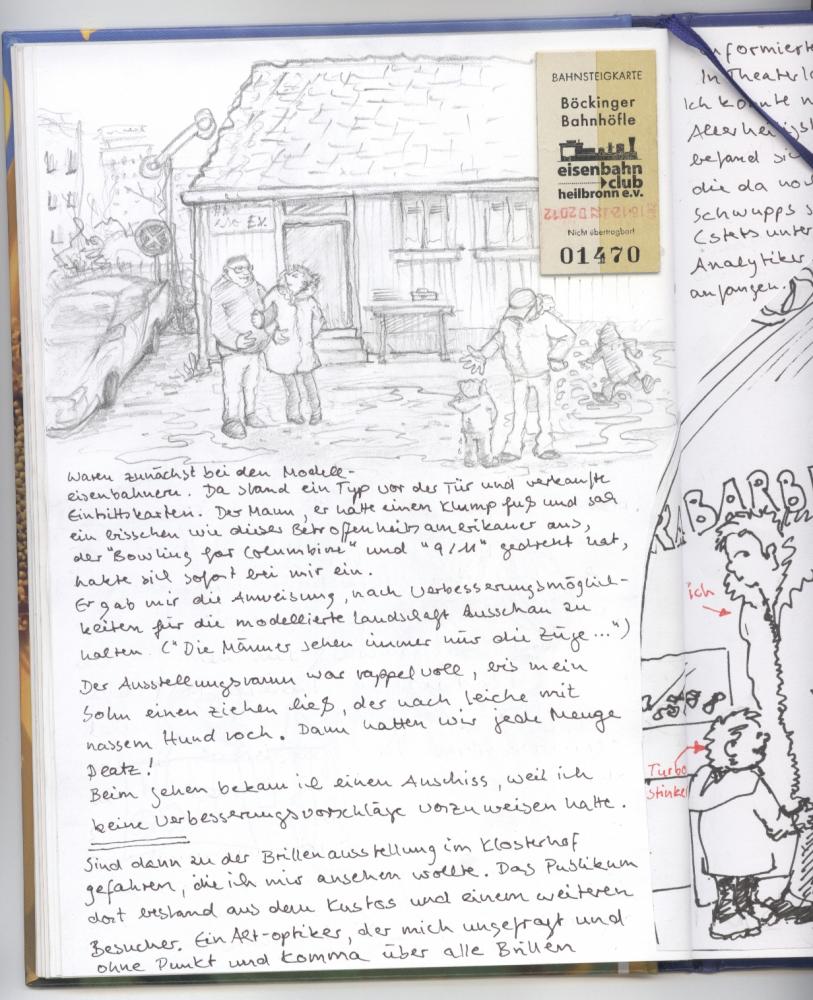 BAHNSTEIGKARTE
Böckinger
Bahnhöfle
eisenbahn
club
heilbronn e.v.
Nicht übertragbar!
01470
Waren zunächst bei den Modell-
eisenbahnern. Da stand ein Typ vor der Tür und verkaufte
Eintrittskarten. Der Mann, er hatte einen Klumpfuß und sah
ein bisschen wie dieser Betroffenheitsamerikaner aus,
der "Bowling for Columbine" und "9/11" gedreht hat,
hakte sich sofort bei mir ein.
Er gab mir die Anweisung, nach Verbesserungsmöglich-
keiten für die modellierte Landschaft Ausschau zu
halten. ("Die Männer sehen immer nur die Züge...")
Der Ausstellungsraum war rappelvoll, bis mein
Sohn einen ziehen ließ, der nach Leiche mit
nassem Hund roch. Dann hatten wir jede Menge
Platz!
Beim gehen bekam ich einen Anschiss, weil ich
keine Verbesserungsvorschläge vorzuweisen hatte.
Sind dann zu der Brillenausstellung im Klosterhof
gefahren, die ich mir ansehen wollte. Das Publikum
dort bestand aus dem Kustos und einem weiteren
Besucher. Ein Alt-optiker, der mich ungefragt und
ohne Punkt und Komma über alle Brillen
informierte
In Theater
Ich konnte
befand
die da
schwupps
(stets unter
Analytiker
anfangen.
ich
Turbo
Stinkel